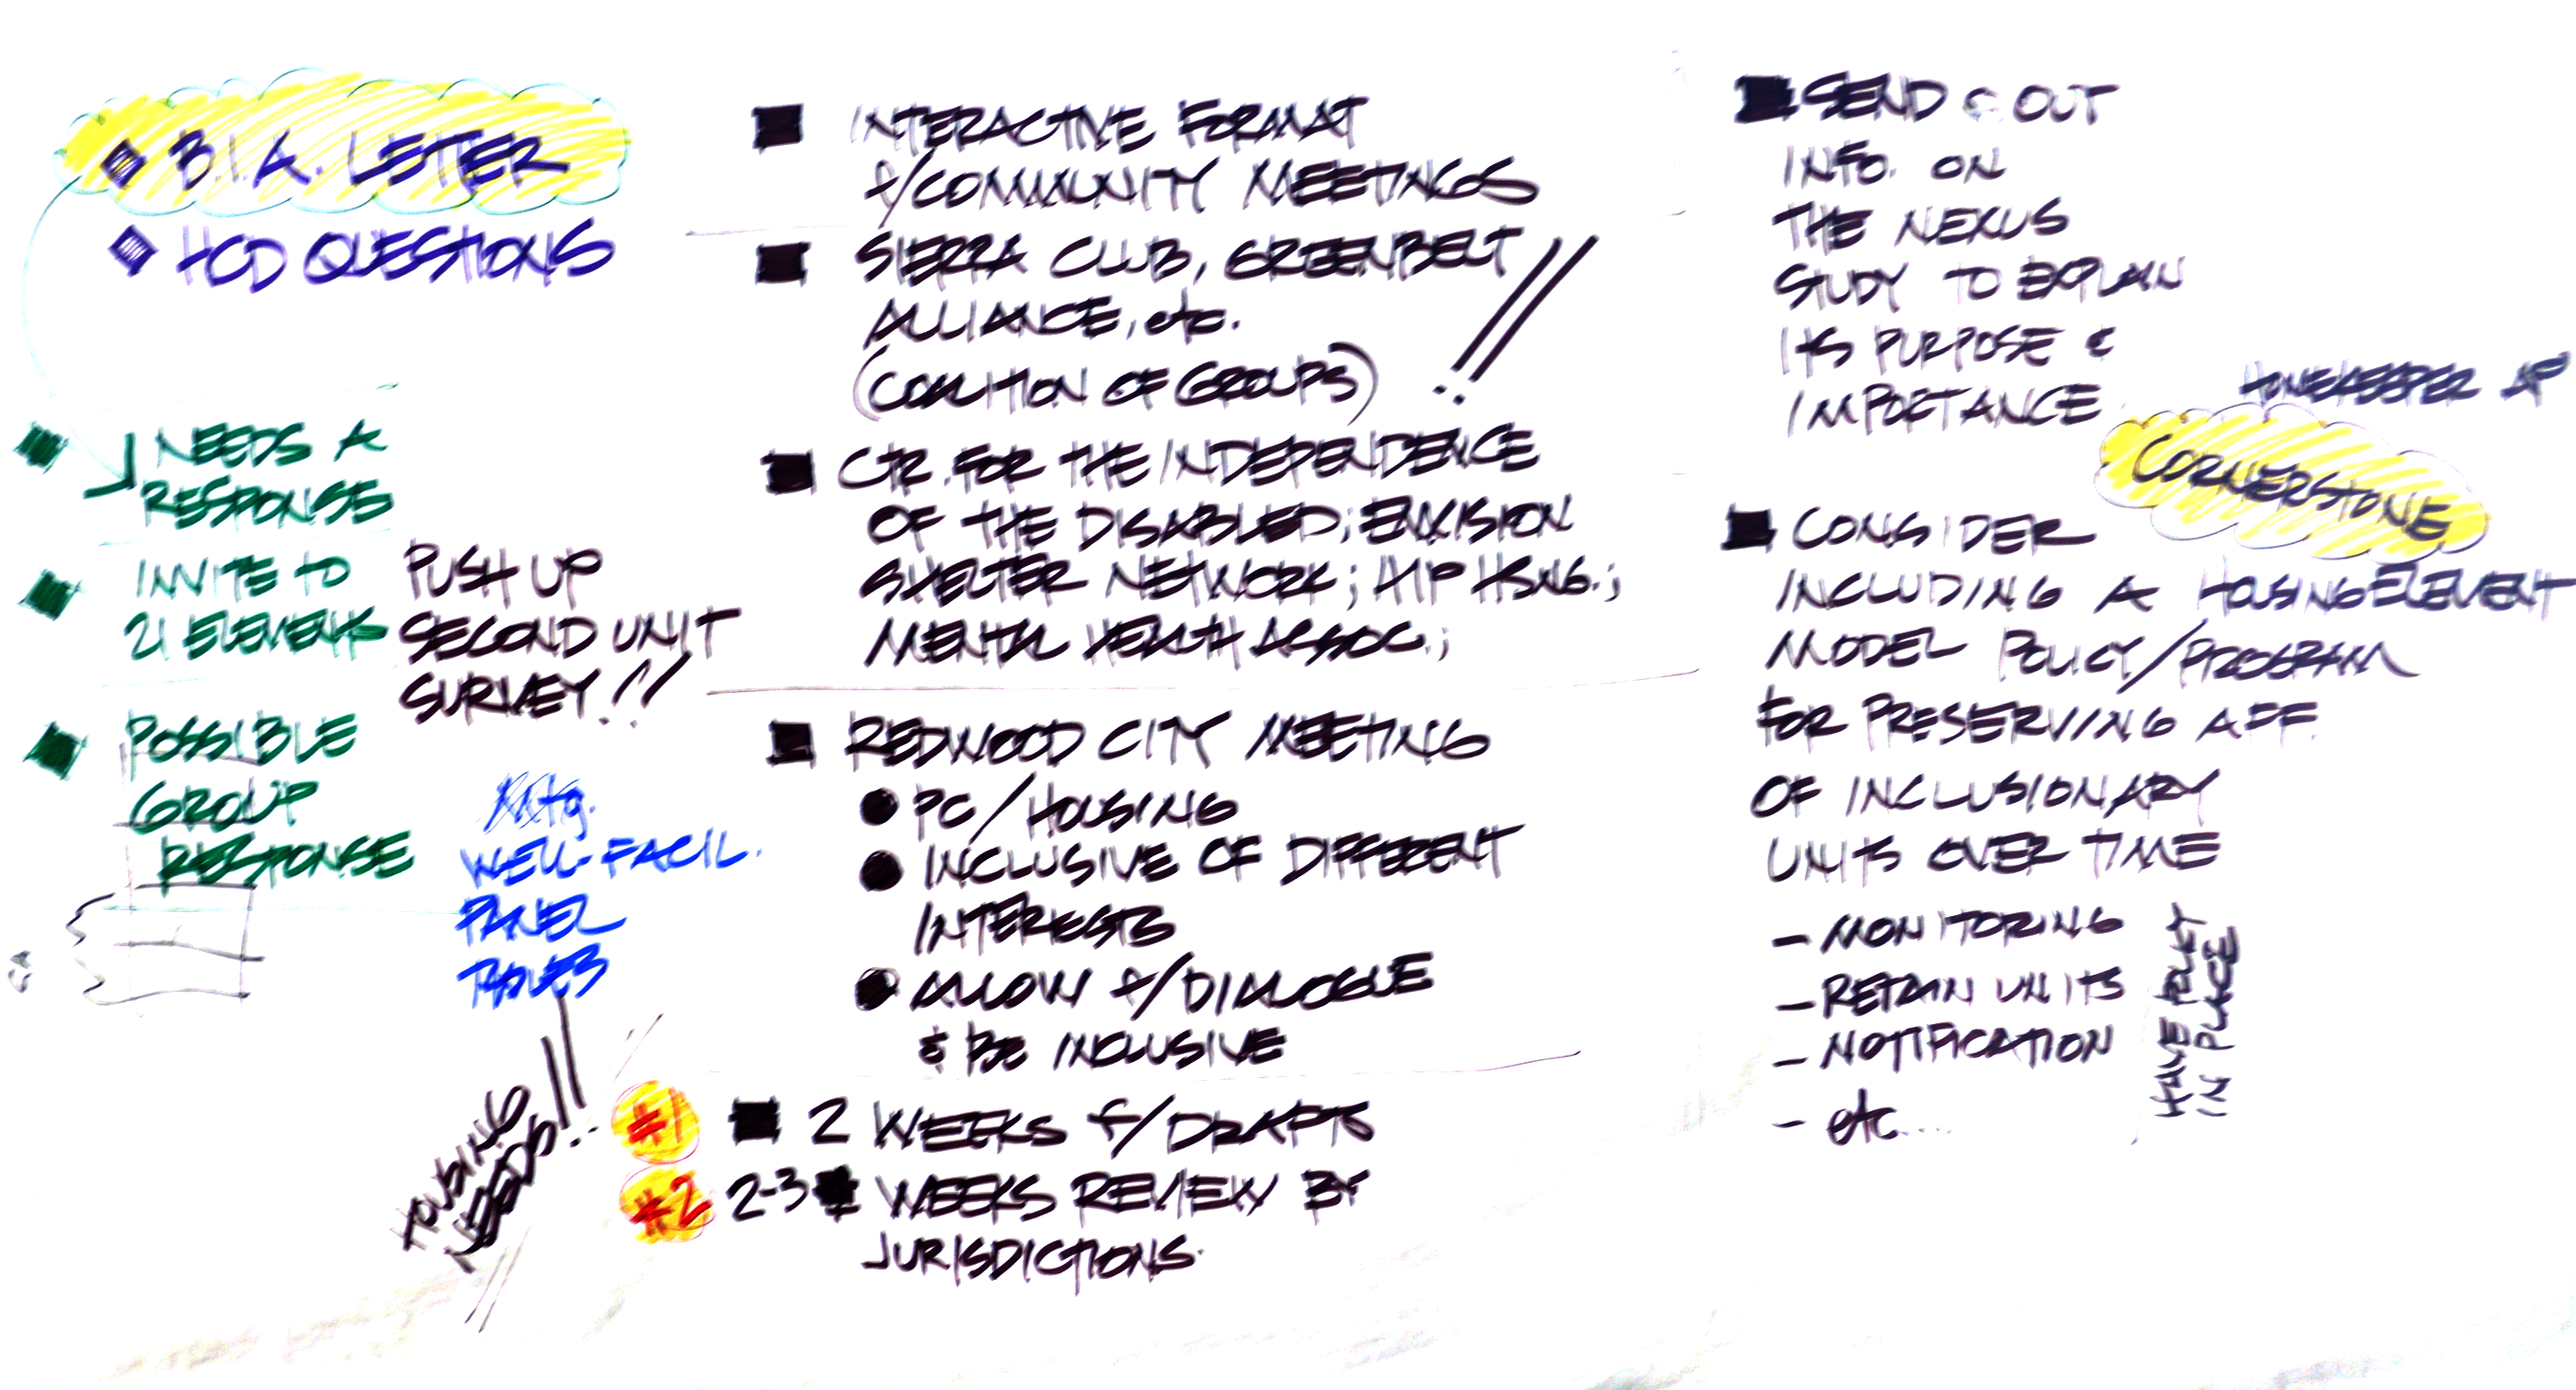 B.I.A. LETTER
HCD QUESTIONS
NEEDS A
RESPONSE
INVITE TO
21 ELEMENTS
PUSH UP
SECOND UNIT
SURVEY!!
POSSIBLE
GROUP
RESPONSE
Mtg.
WELL-FACIL.
PANEL
HOUSING
NEEDS!!
INTERACTIVE FORMAT
f/COMMUNITY MEETINGS
SIERRA CLUB, GREENBELT
ALLIANCE, etc.
(COALITION OF GROUPS) !!
CTR. FOR THE INDEPENDENCE
OF THE DISABLED; ENVISION
SHELTER NETWORK; HIP HSNG.;
MENTAL HEALTH ASSOC.;
REDWOOD CITY MEETING
PC/HOUSING
INCLUSIVE OF DIFFERENT
INTERESTS
ALLOW f/DIALOGUE
& BE INCLUSIVE
#1 2 WEEKS f/DRAFTS
#2 2-3 WEEKS REVIEW BY
JURISDICTIONS.
SEND OUT
INFO. ON
THE NEXUS
STUDY TO EXPLAIN
ITS PURPOSE &
IMPORTANCE
HOMEKEEPER
CORNERSTONE
CONSIDER
INCLUDING A HOUSING ELEMENT
MODEL POLICY/PROGRAM
FOR PRESERVING AFF.
OF INCLUSIONARY
UNITS OVER TIME
- MONITORING
- RETAIN UNITS
- NOTIFICATION
- etc....
HAVE POLICY
IN PLACE